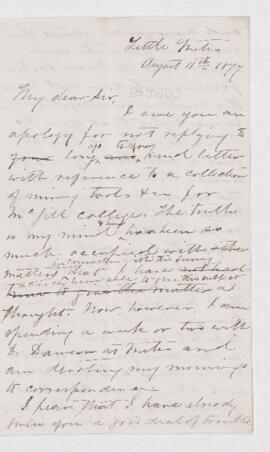 Little Metis
August 11th 1877
My dear Sir,
I owe you an
apology for not replying to
your long ago kind letter
with reference to a collection
of mining tools &c for
McGill College. The truth
is my mind has been so
much occupied with other
in connection with the survey
matters that I have not had
the matter a
thought. Now, however, I am
spending a week or two with
Dr Dawson at Metis and
am devoting my mornings
to correspondence.
I fear that I have already
given you a good deal of trouble